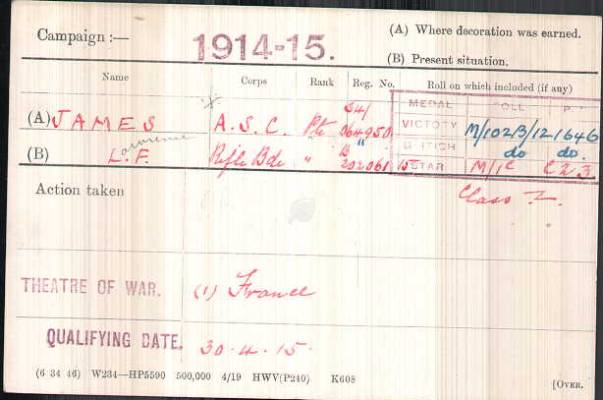 Campaign :—
1914-15.
(A) Where decoration was earned.
(B) Present situation.
Name Corps Rank Reg. No. Roll on which included (if any)
MEDAL ROLL
(A) JAMES A.S.C. Pte S4/ 064950 VICTORY M/102B/12 1646
Lawrence
BRITISH do do.
(B) L.F. Rifle Bde " B 202061 15 STAR M/1C C23
Action taken
Class Z.
THEATRE OF WAR. (1) France
QUALIFYING DATE. 30.4.15.
(6 34 46) W234—HP5590 500,000 4/19 HWV(P240) K608
[OVER.